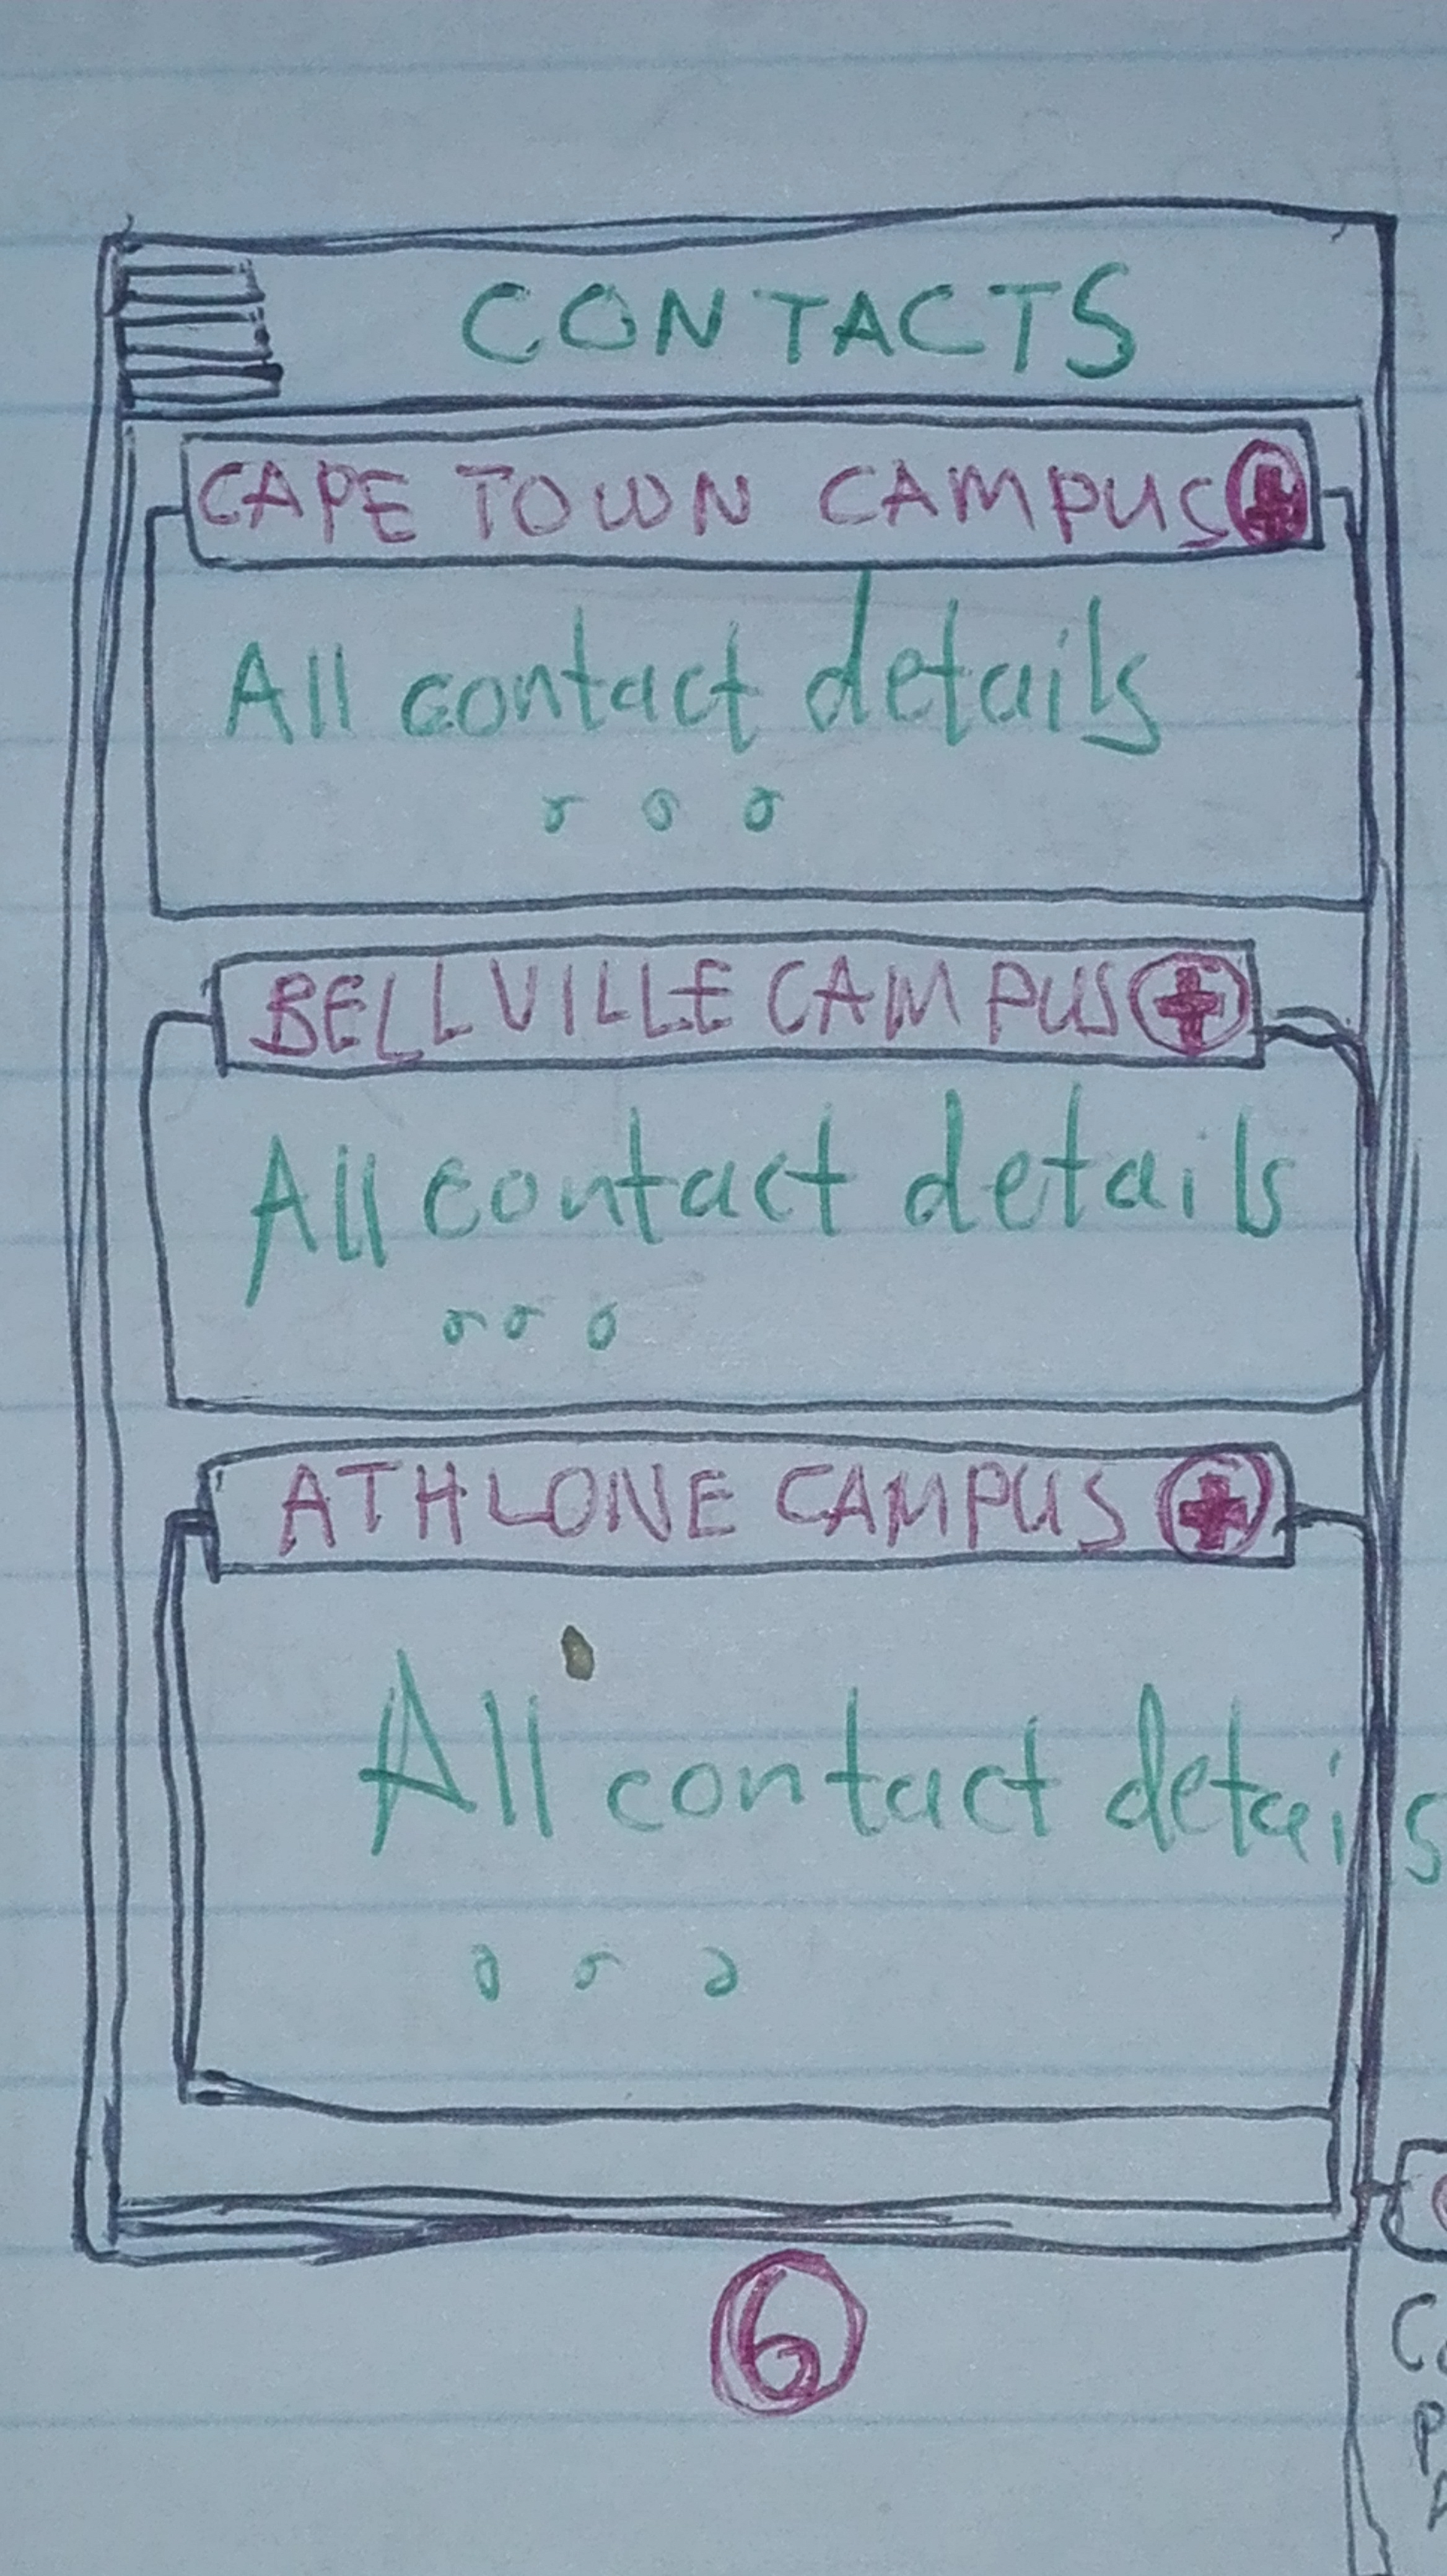 CONTACTS
CAPE TOWN CAMPUS
All contact details
...
BELLVILLE CAMPUS
All contact details
...
ATHLONE CAMPUS
All contact details
...
6